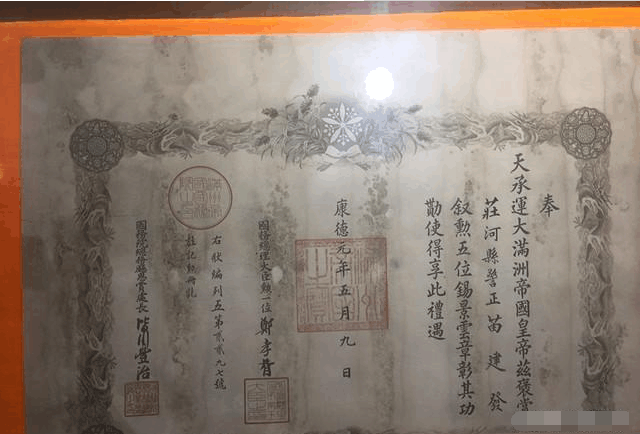 奉
天承運大滿洲帝國皇帝茲褒賞
莊河縣警正苗建發
敘勲五位錫景雲章彰其功
勛使得孚此禮遇
康德元年五月九日
國務總理大臣勲一位鄭孝胥
右狀編列五第貳貳九七號
註記勲冊訖
國務院總務廳賞處長